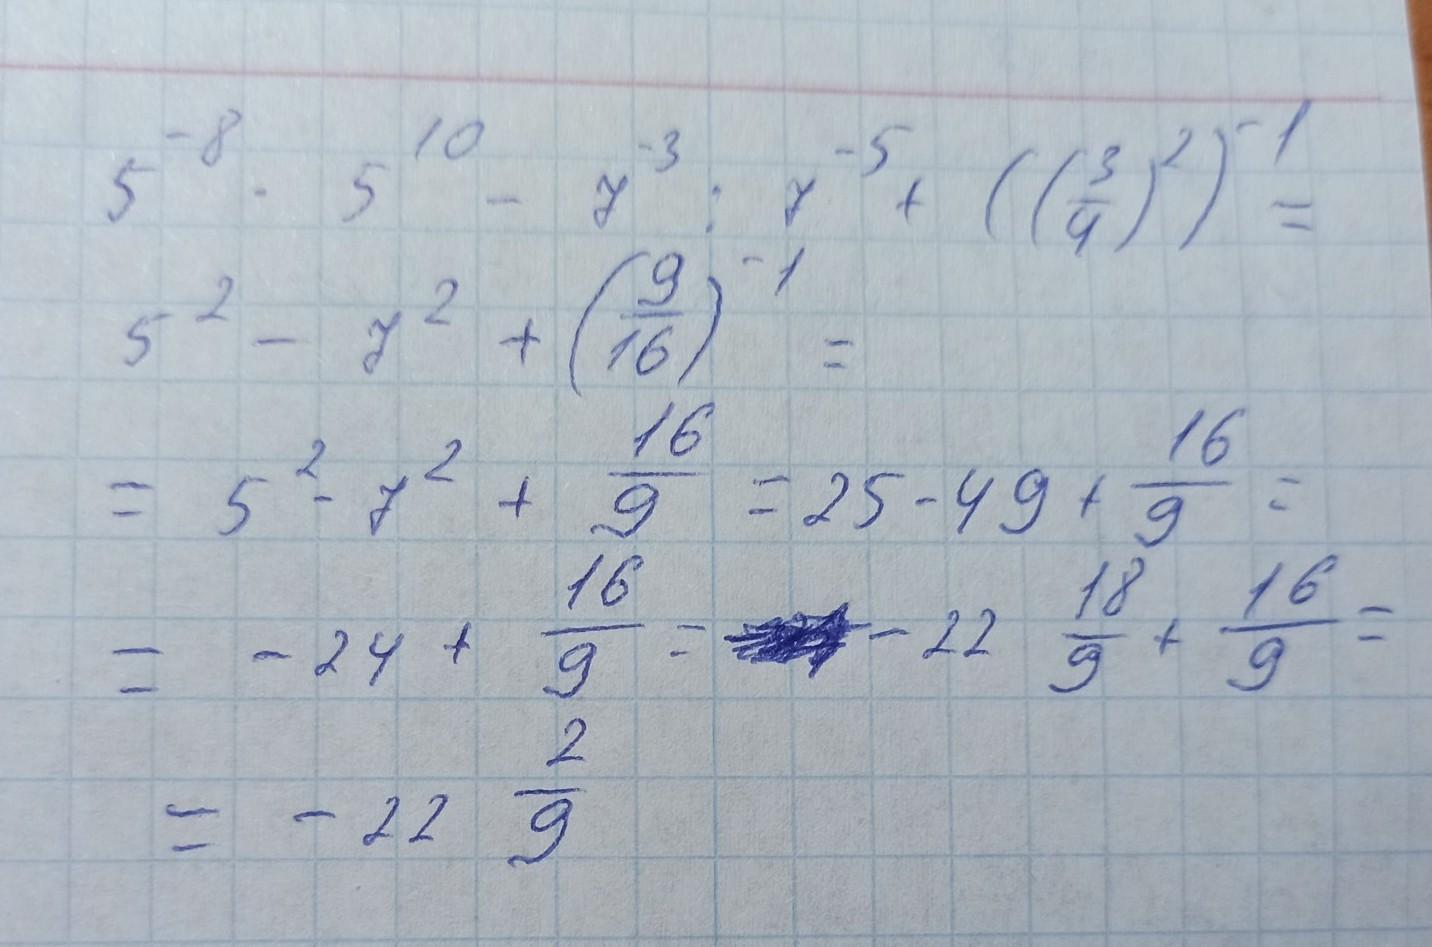 5^{-8} · 5^{10} - 7^{-3} : 7^{-5} + ((3/4)^2)^{-1} =
5^2 - 7^2 + (9/16)^{-1} =
= 5^2 - 7^2 + 16/9 = 25 - 49 + 16/9 =
= -24 + 16/9 = -22 18/9 + 16/9 =
= -22 2/9